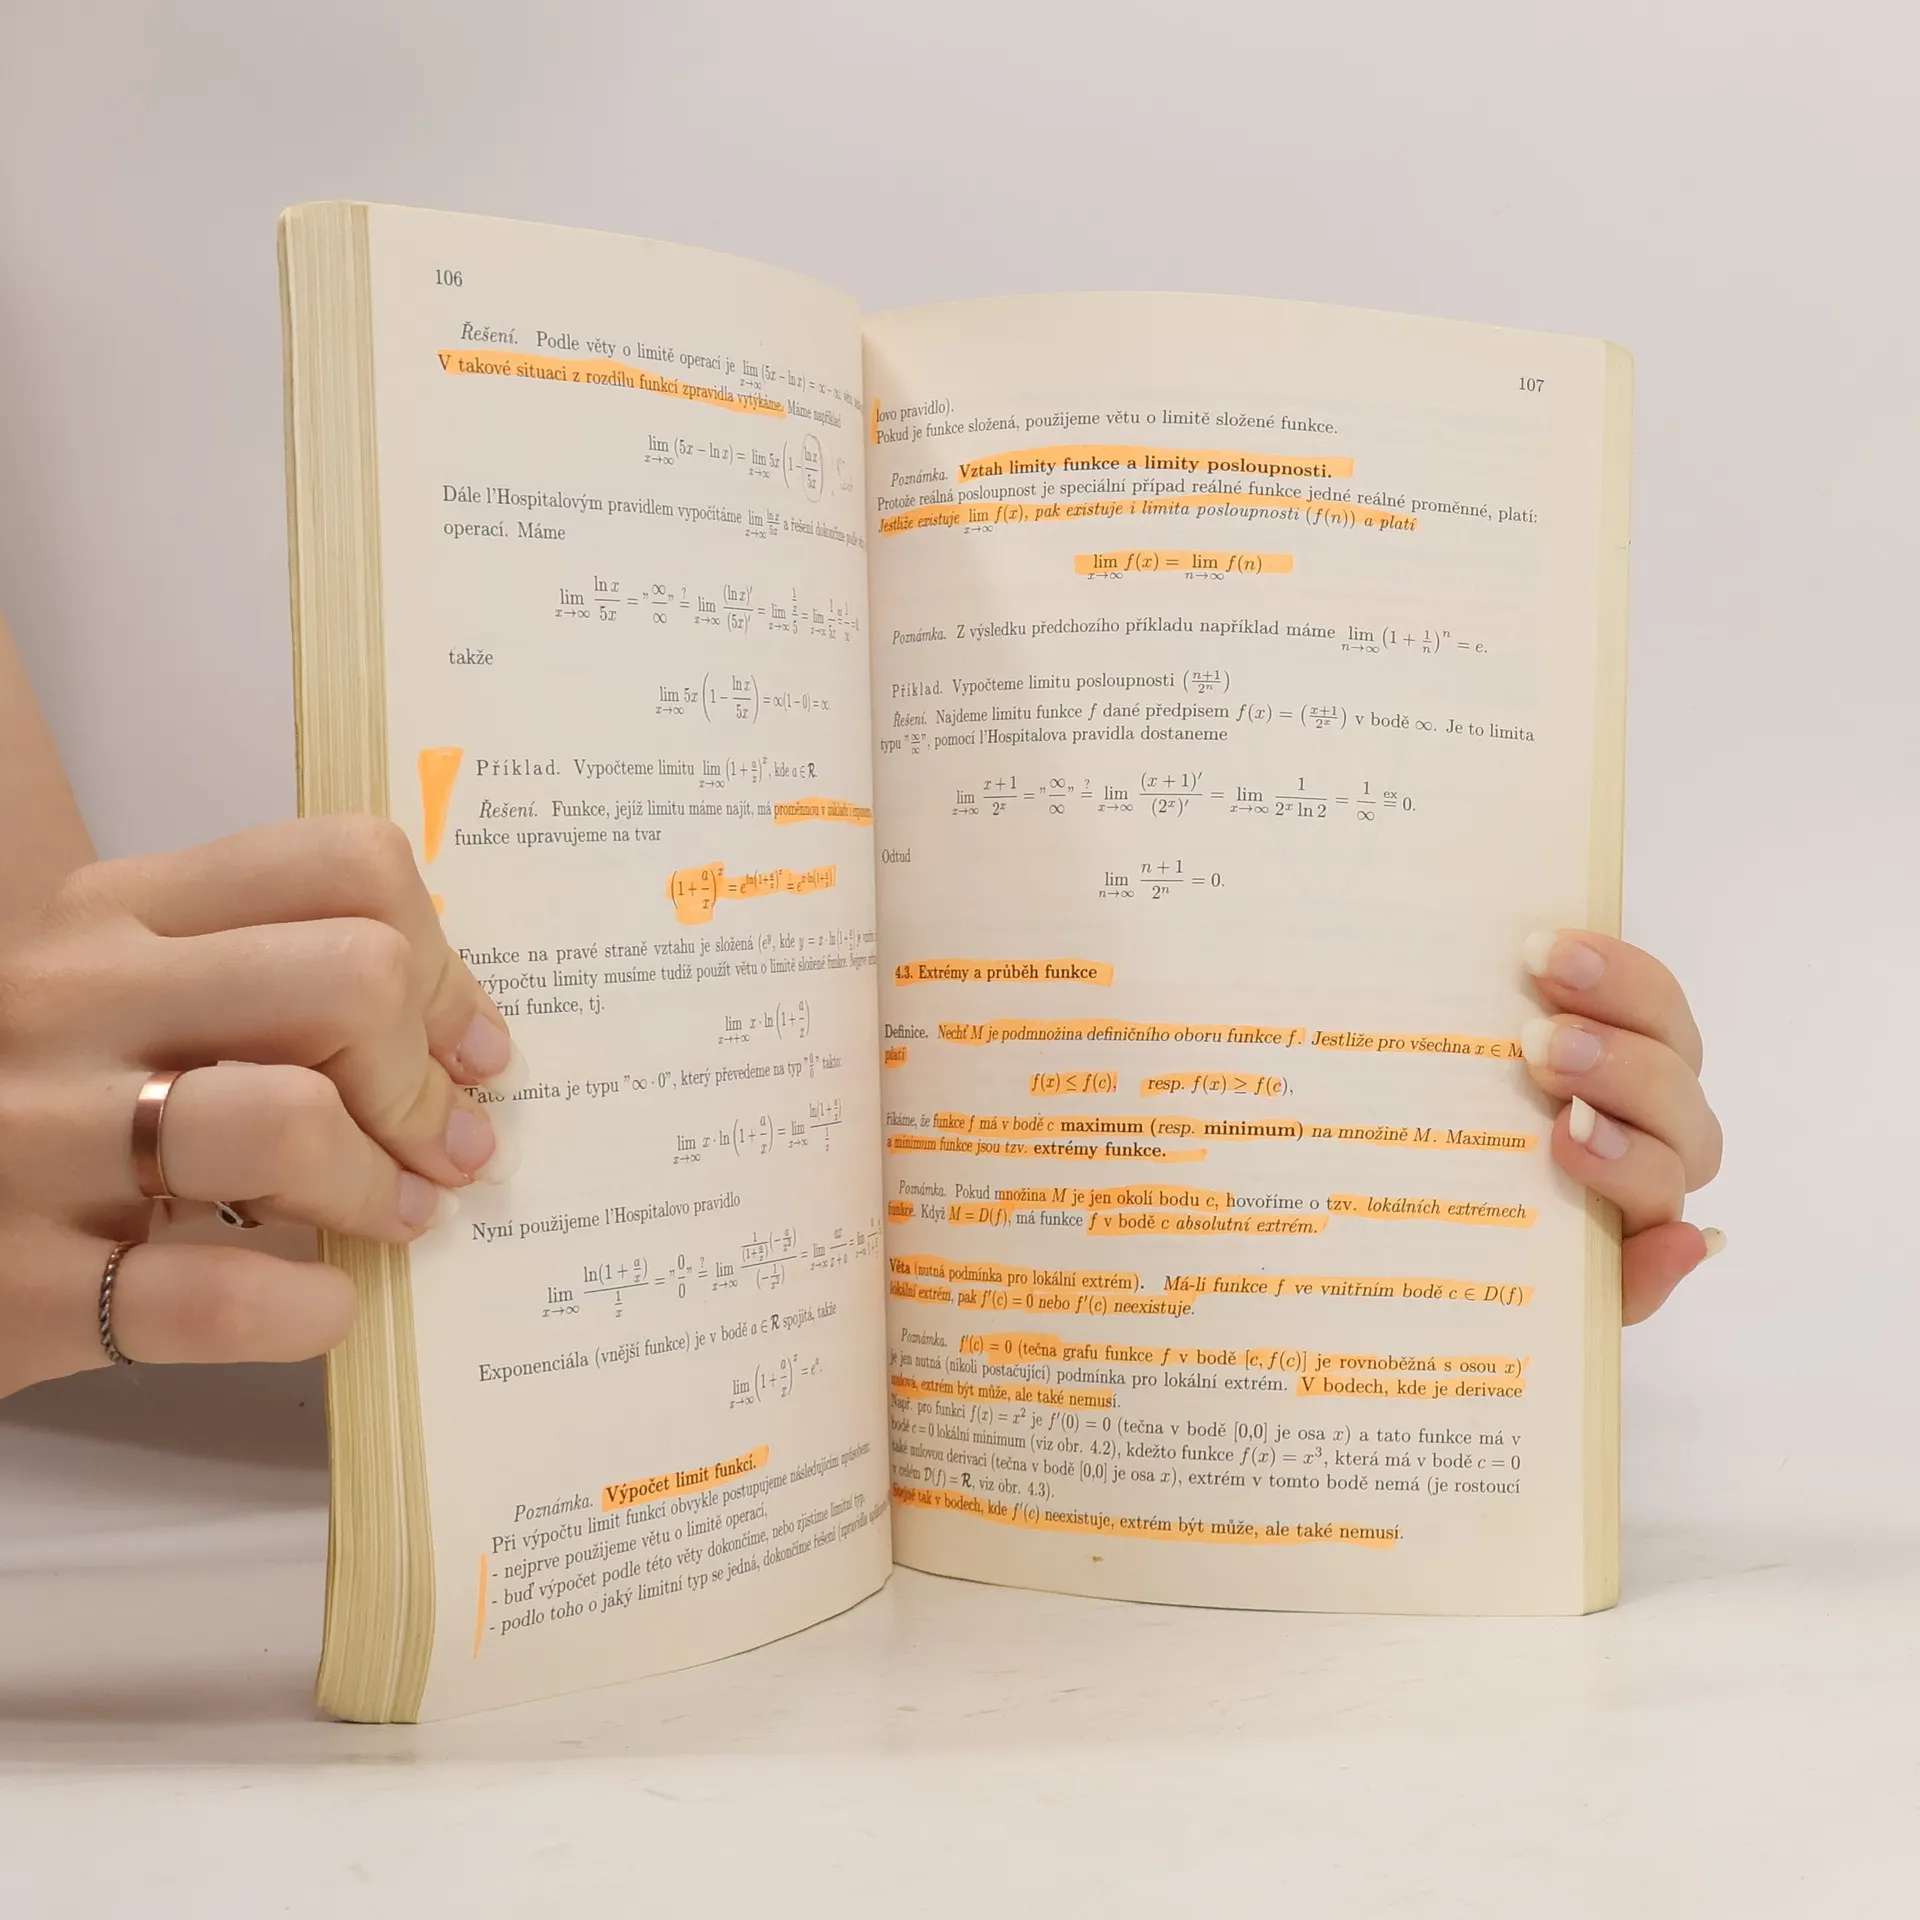 106
Řešení. Podle věty o limitě operací je lim x→∞ (5x − ln x) = ∞ − ∞,
V takové situaci z rozdílu funkcí zpravidla vytýkáme. Máme například
lim x→∞ (5x − ln x) = lim x→∞ 5x (1 − ln x / 5x)
Dále l'Hospitalovým pravidlem vypočítáme lim x→∞ ln x / 5x a řešení dokončíme podle
operací. Máme
lim x→∞ ln x / 5x = "∞/∞" ?= lim x→∞ (ln x)' / (5x)' = lim x→∞ (1/x) / 5 = lim x→∞ 1 / 5x ex= 1/∞ = 0,
takže
lim x→∞ 5x (1 − ln x / 5x) = ∞(1 − 0) = ∞.
Příklad. Vypočteme limitu lim x→∞ (1 + a/x)^x, kde a ∈ R.
Řešení. Funkce, jejíž limitu máme najít, má proměnnou v základu i exponentu,
funkce upravujeme na tvar
(1 + a/x)^x = e^{ln(1+a/x)^x} = e^{x·ln(1+a/x)}
Funkce na pravé straně vztahu je složená (e^y, kde y = x · ln(1 + a/x) je
výpočtu limity musíme tudíž použít větu o limitě složené funkce. Nejprve
funkce, tj.
lim x→+∞ x · ln (1 + a/x)
Tato limita je typu "∞ · 0", který převedeme na typ "0/0" takto:
lim x→∞ x · ln (1 + a/x) = lim x→∞ ln(1 + a/x) / (1/x)
Nyní použijeme l'Hospitalovo pravidlo
lim x→∞ ln(1 + a/x) / (1/x) = "0/0" ?= lim x→∞ (1/(1+a/x)) (−a/x²) / (−1/x²) = lim x→∞ ax / x + a = lim
Exponenciála (vnější funkce) je v bodě a ∈ R spojitá, takže
lim x→∞ (1 + a/x)^x = e^a.
Poznámka. Výpočet limit funkcí.
Při výpočtu limit funkcí obvykle postupujeme následujícím způsobem:
- nejprve použijeme větu o limitě operací,
- buď výpočet podle této věty dokončíme, nebo zjistíme limitní typ,
- podlo toho o jaký limitní typ se jedná, dokončíme řešení (zpravidla
107
lovo pravidlo).
Pokud je funkce složená, použijeme větu o limitě složené funkce.
Poznámka. Vztah limity funkce a limity posloupnosti.
Protože reálná posloupnost je speciální případ reálné funkce jedné reálné proměnné, platí:
Jestliže existuje lim x→∞ f(x), pak existuje i limita posloupnosti (f(n)) a platí
lim x→∞ f(x) = lim n→∞ f(n)
Poznámka. Z výsledku předchozího příkladu například máme lim n→∞ (1 + 1/n)^n = e.
Příklad. Vypočteme limitu posloupnosti (n+1 / 2^n)
Řešení. Najdeme limitu funkce f dané předpisem f(x) = (x+1 / 2^x) v bodě ∞. Je to limita
typu "∞/∞", pomocí l'Hospitalova pravidla dostaneme
lim x→∞ x + 1 / 2^x = "∞/∞" ?= lim x→∞ (x + 1)' / (2^x)' = lim x→∞ 1 / 2^x ln 2 = 1/∞ ex= 0.
Odtud
lim n→∞ n + 1 / 2^n = 0.
4.3. Extrémy a průběh funkce
Definice. Nechť M je podmnožina definičního oboru funkce f. Jestliže pro všechna x ∈ M
platí
f(x) ≤ f(c), resp. f(x) ≥ f(c),
říkáme, že funkce f má v bodě c maximum (resp. minimum) na množině M. Maximum
a minimum funkce jsou tzv. extrémy funkce.
Poznámka. Pokud množina M je jen okolí bodu c, hovoříme o tzv. lokálních extrémech
funkce. Když M = D(f), má funkce f v bodě c absolutní extrém.
Věta (nutná podmínka pro lokální extrém). Má-li funkce f ve vnitřním bodě c ∈ D(f)
lokální extrém, pak f'(c) = 0 nebo f'(c) neexistuje.
Poznámka. f'(c) = 0 (tečna grafu funkce f v bodě [c, f(c)] je rovnoběžná s osou x)
je jen nutná (nikoli postačující) podmínka pro lokální extrém. V bodech, kde je derivace
nulová, extrém být může, ale také nemusí.
Např. pro funkci f(x) = x² je f'(0) = 0 (tečna v bodě [0,0] je osa x) a tato funkce má v
bodě c = 0 lokální minimum (viz obr. 4.2), kdežto funkce f(x) = x³, která má v bodě c = 0
také nulovou derivaci (tečna v bodě [0,0] je osa x), extrém v tomto bodě nemá (je rostoucí
v celém D(f) = R, viz obr. 4.3).
Stejně tak v bodech, kde f'(c) neexistuje, extrém být může, ale také nemusí.